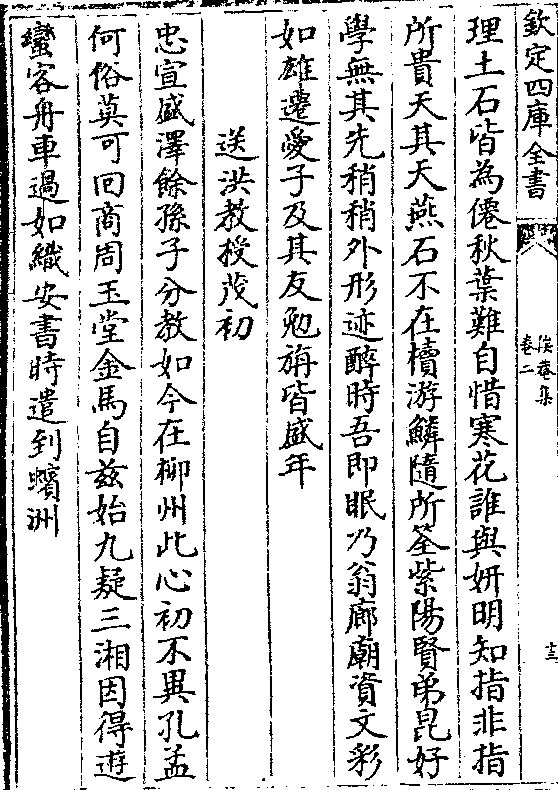 欽定四庫全書
俟菴集
卷二
十三
理土石皆為僊秋葉難自惜寒花誰與妍明知指非指
所貴天其天燕石不在櫝游鱗隨所筌紫陽賢弟昆好
學無其先稍稍外形迹醉時吾即眠乃翁廊廟資文彩
如雄遷愛子及其友勉旃皆盛年
送洪教授茂初
忠宣盛澤餘孫子分教如今在柳州此心初不異孔孟
何俗莫可回商周玉堂金馬自兹始九疑三湘因得遊
蠻客舟車過如織安書時遣到蠙洲